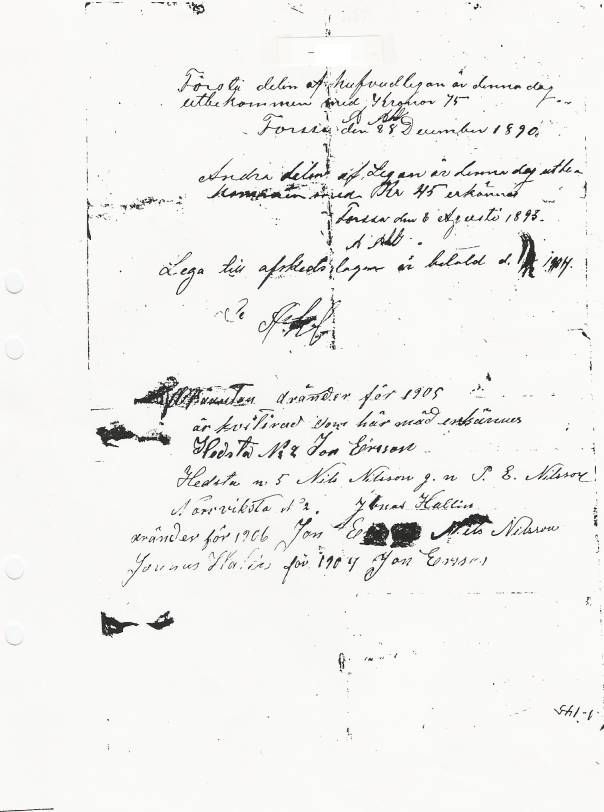 Första delen af hufvudlegan är denna dag
utbekommen med Kronor 75
Forssa den 28 December 1890.
Andra delen af Legan är denna dag utbe-
kommen med Kr 45 erkännes
Forssa den 6 Agusti 1893.
Lega till afskeds lagen är betald d. 1904.
aränder för 1905
är kviterad som här mäd erkännes
Hedsta No 2 Jon Ersson
Hedsta n 5 Nils Nilsson g. n P. E. Nilsson
Norrviksta No 2. Jonas Hallin
aränder för 1906 Jon Nils Nilsson
Jonnas Halin för 1907 Jon Ersson